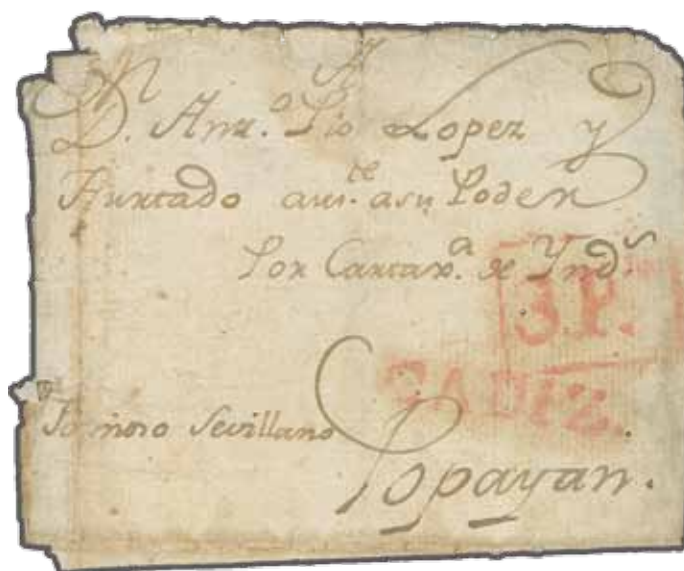 D. Ant.º Pio Lopez y
Hurtado aus.te a su Poder
Por Cartax.a de Ynd.s
3.P.
CADIZ.
Sevillano
Popayan.